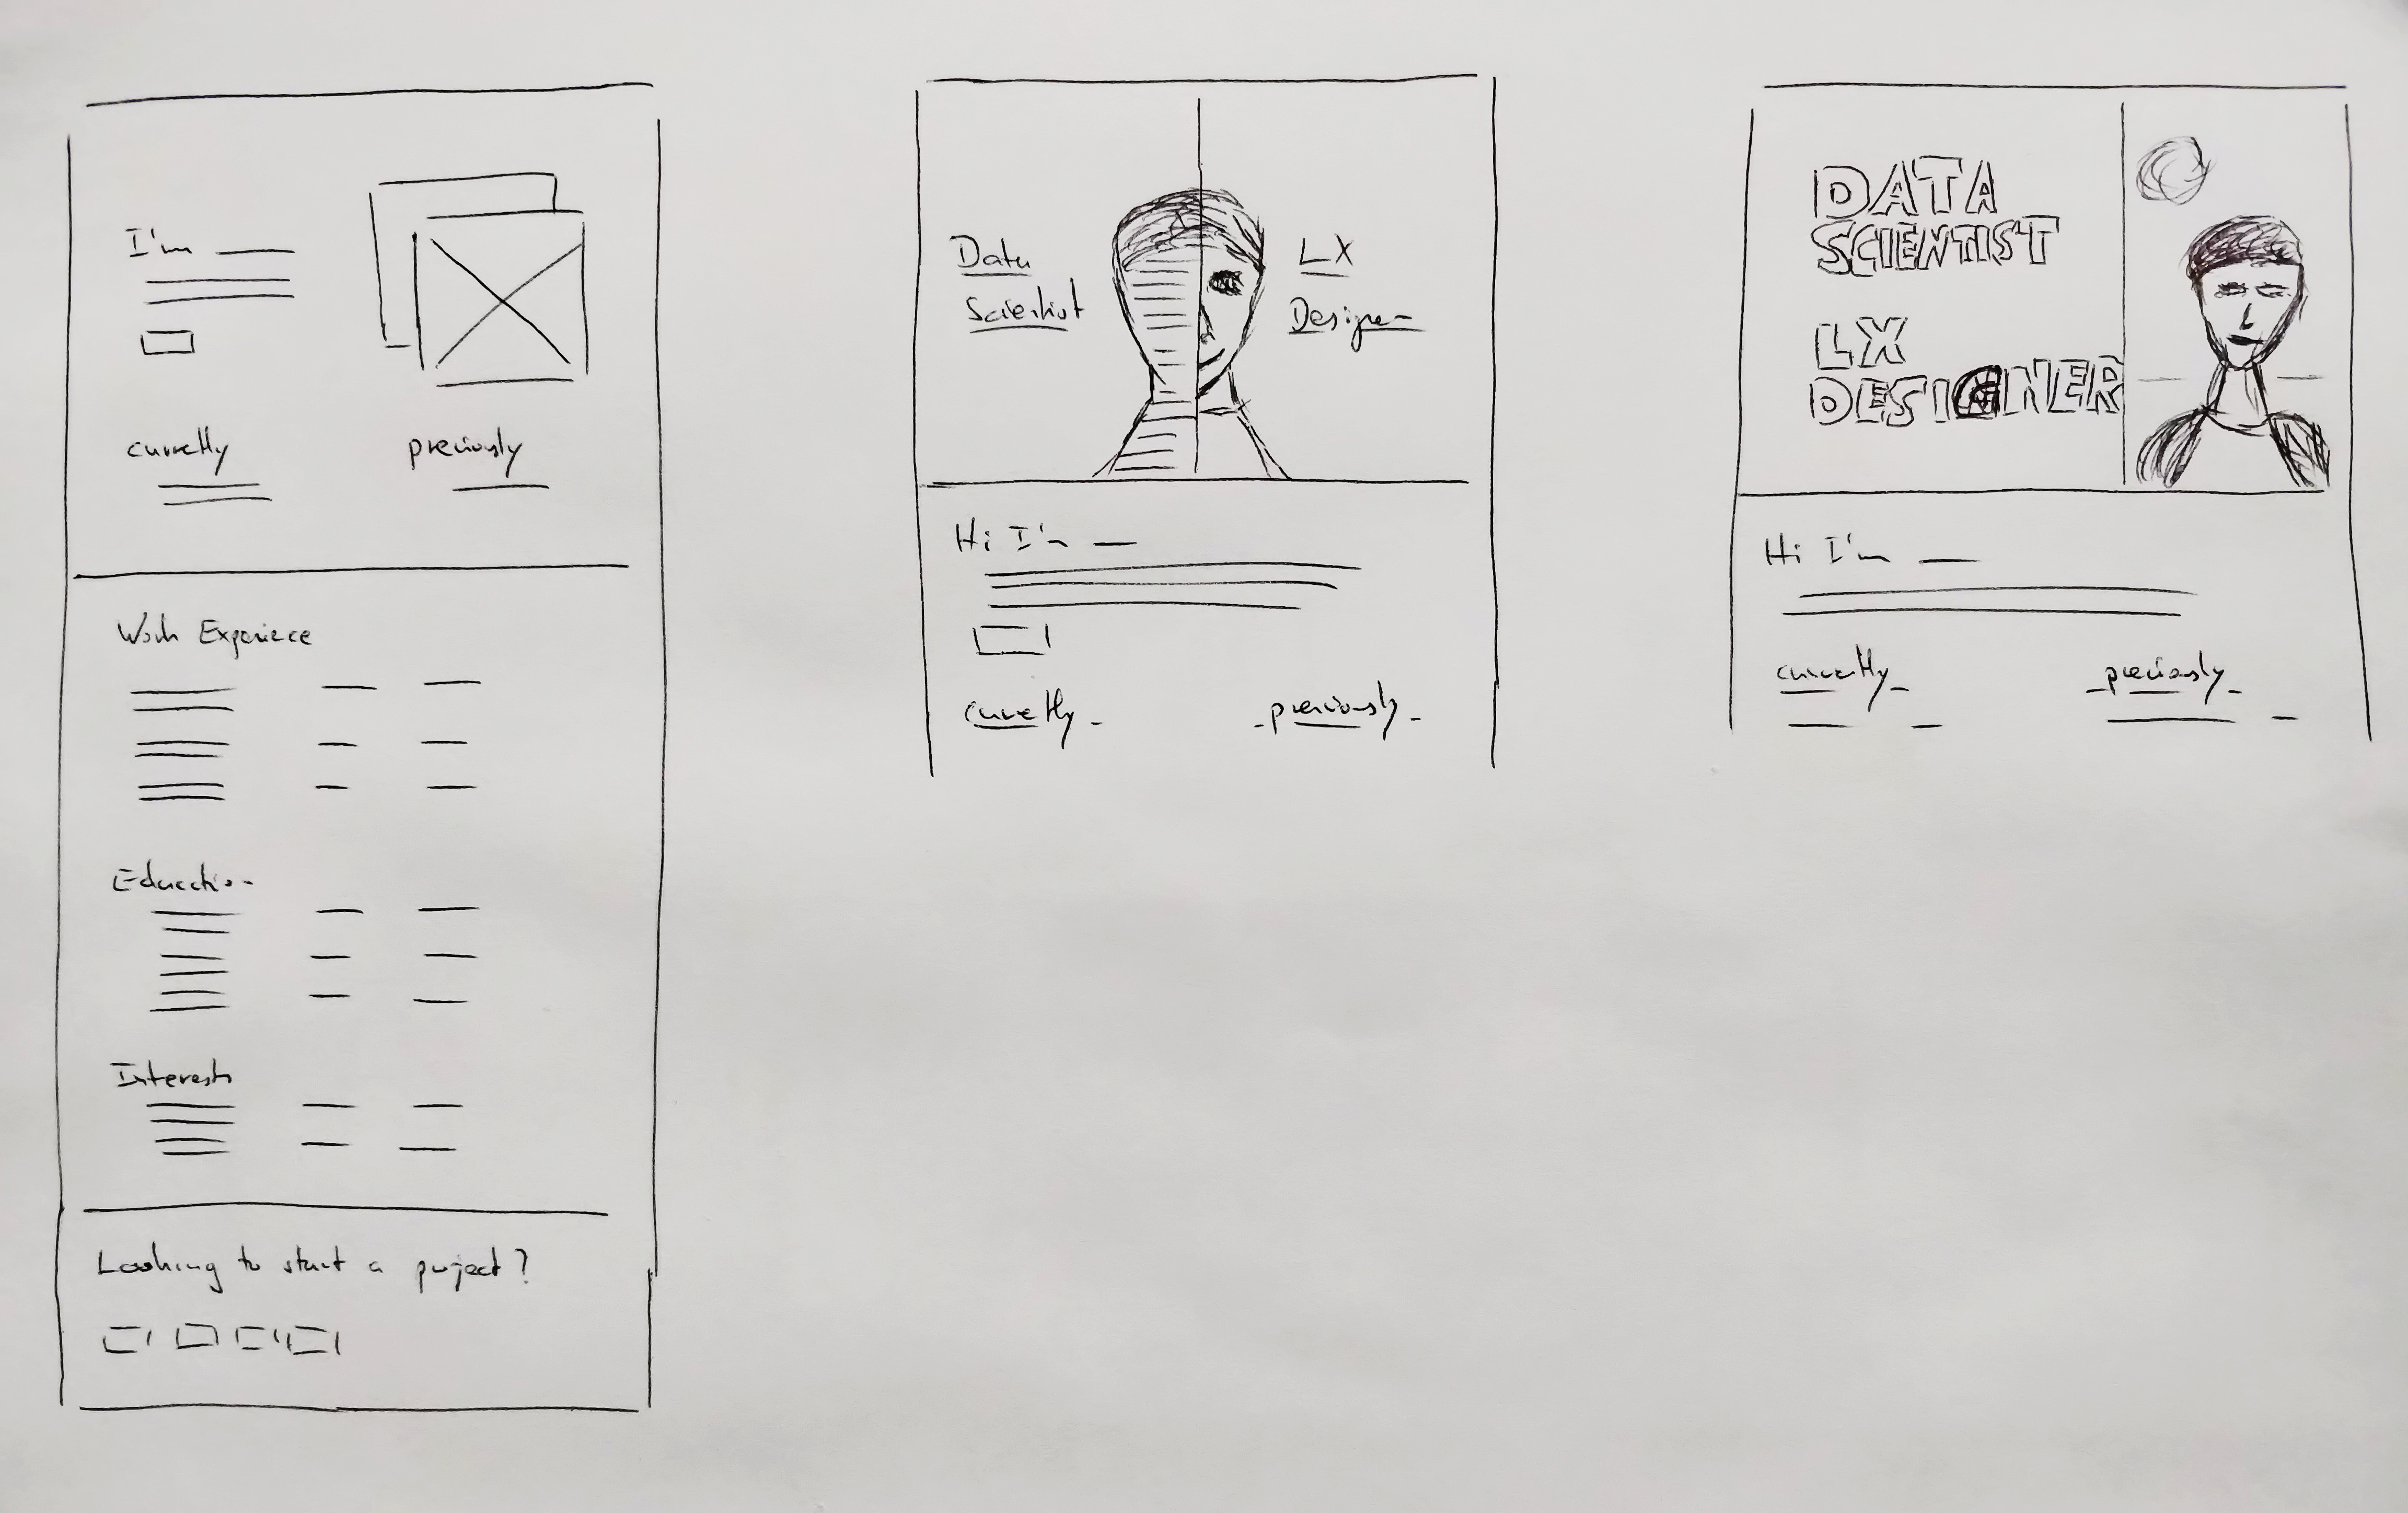 I'm
currently
previously
Work Experience
Education
Interests
Looking to start a project?
Data
Scientist
LX
Designer
Hi I'm
currently
previously
DATA
SCIENTIST
LX
DESIGNER
Hi I'm
currently
previously